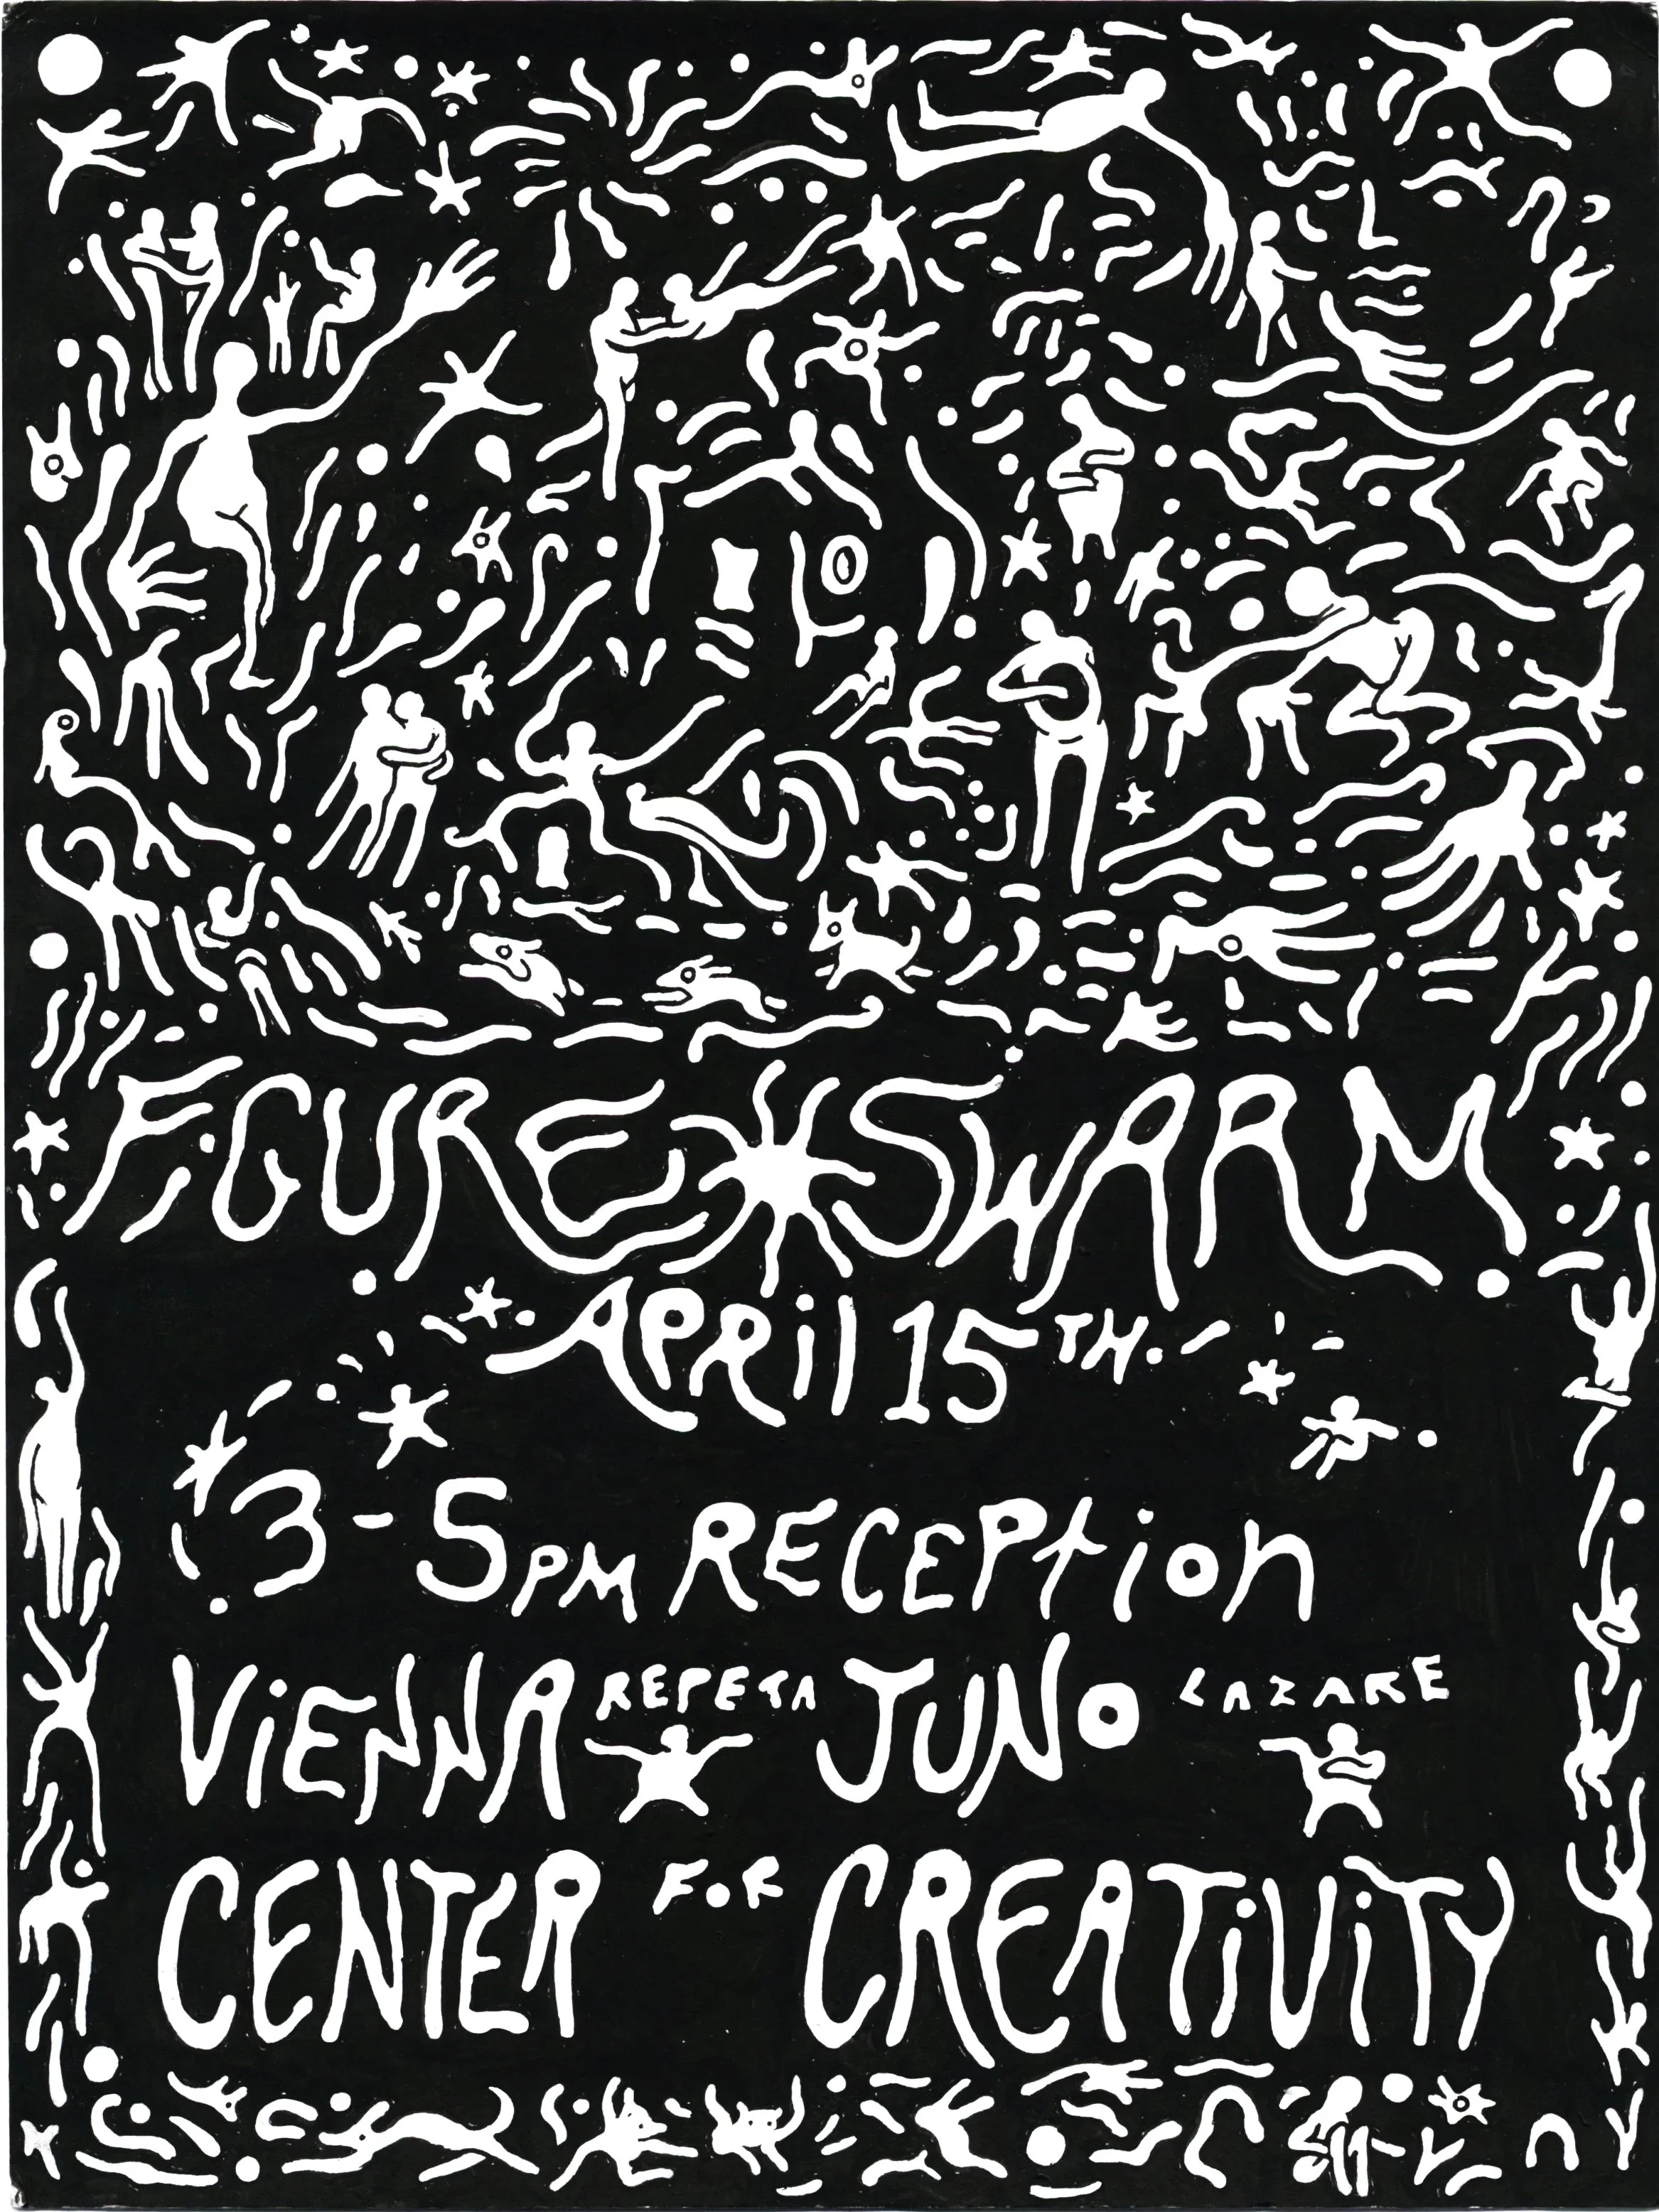 FiGURE SWARM
APRil 15TH.
3-5PM RECEPtion
ViENNA REPETA JUNO LAZARE
CENTER FOR CREATiViTY